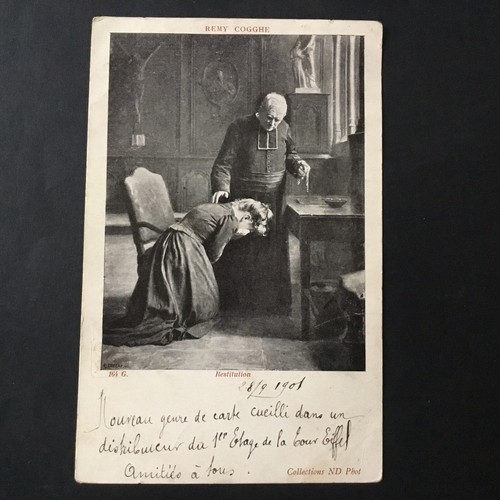 REMY COGGHE
164 G.
Restitution
28/9 1901
Nouveau genre de carte cueilli dans un
distributeur du 1er Etage de la Tour Eiffel
Amitiés à tous.
Collections ND Phot